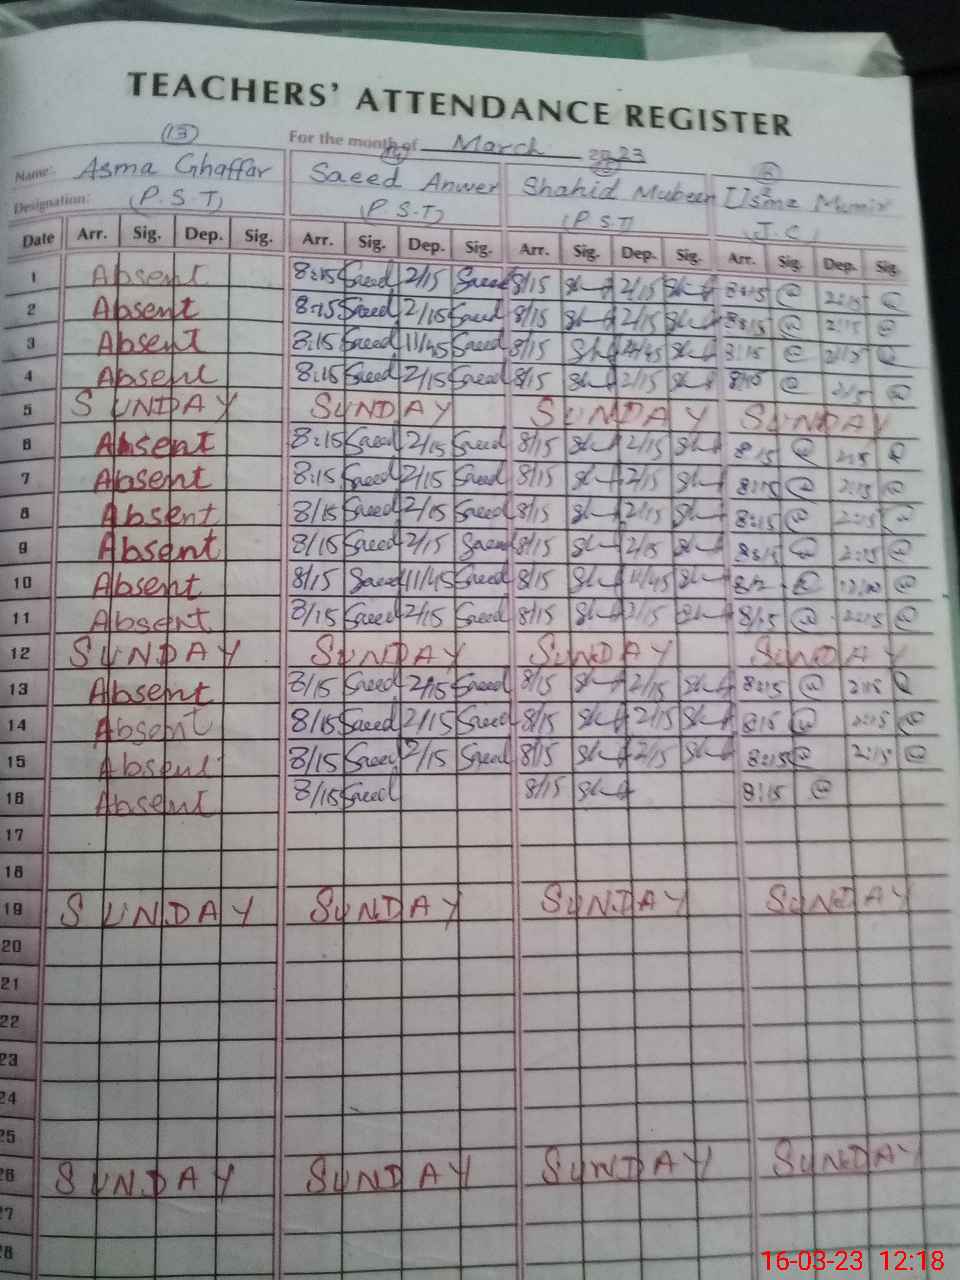 TEACHERS' ATTENDANCE REGISTER
For the month of March 2023
(13)
Name: Asma Ghaffar Saeed Anwer Shahid Mubeen
Designation: (P.S.T) (P.S.T) (P.S.T) (J.C)
Date Arr. Sig. Dep. Sig. Arr. Sig. Dep. Sig. Arr. Sig. Dep. Sig. Arr. Sig. Dep. Sig.
1 Absent 8:15 Saeed 2/15 Saeed 8/15 2/15 8:15 2:15
2 Absent 8:15 Saeed 2/15 Saeed 8/15 2/15 8:15 2:15
3 Absent 8:15 Saeed 11/45 Saeed 8/15 8:15
4 Absent 8:15 Saeed 2/15 Saeed 8/15 2/15 8:15 2:15
5 SUNDAY SUNDAY SUNDAY SUNDAY
6 Absent 8:15 Saeed 2/15 Saeed 8/15 2/15 8:15 2:15
7 Absent 8:15 Saeed 2/15 Saeed 8/15 2/15 8:15 2:15
8 Absent 8/15 Saeed 2/15 Saeed 8/15 2/15 8:15 2:15
9 Absent 8/15 Saeed 2/15 Saeed 8/15 2/15 8:15 2:15
10 Absent 8/15 Saeed 11/45 Saeed 8/15 11/45
11 Absent 8/15 Saeed 2/15 Saeed 8/15 2/15 8/15 2:15
12 SUNDAY SUNDAY SUNDAY SUNDAY
13 Absent 8/15 Saeed 2/15 Saeed 8/15 2/15 8:15 2:15
14 Absent 8/15 Saeed 2/15 Saeed 8/15 2/15 8:15 2:15
15 Absent 8/15 Saeed 2/15 Saeed 8/15 2/15 8:15 2:15
16 Absent 8/15 Saeed 8/15 8:15
17
18
19 SUNDAY SUNDAY SUNDAY SUNDAY
20
21
22
23
24
25
26 SUNDAY SUNDAY SUNDAY SUNDAY
27
28
16-03-23 12:18